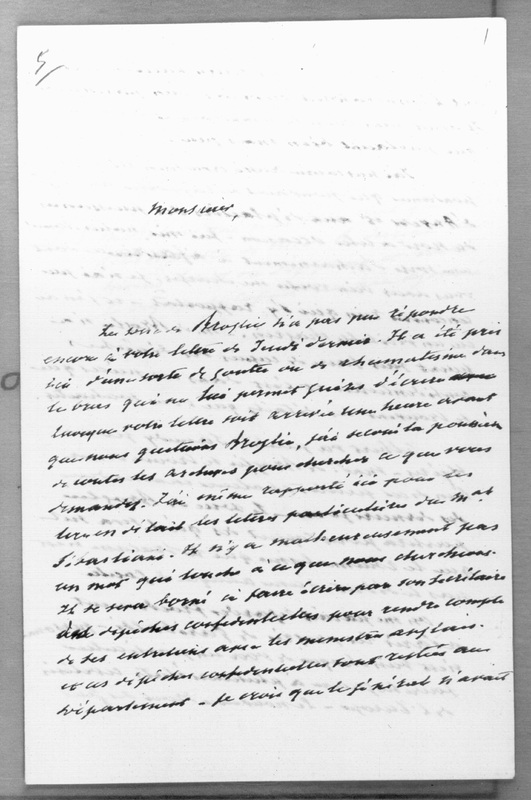 5/
1
Monsieur,
Le duc de Broglie n'a pas pu répondre
encore à votre lettre de Jeudi dernier. Il a été pris
ici d'une sorte de goutte ou de rhumatisme dans
le bras qui ne lui permet guères d'écrire
Lorsque votre lettre soit arrivée une heure avant
que nous quittions Broglie, j'ai secoué la poussière
de toutes les archives pour chercher ce que vous
demandez. J'ai même rapporté ici pour les
lire en détail les lettres particulières du Mal
Sébastiani. Il n'y a malheureusement pas
un mot qui touche à ce que nous cherchions.
Il se sera borné à faire écrire par son secrétaire
des dépêches confidentielles pour rendre compte
de ses entretiens avec les ministres anglais.
et ces dépêches confidentielles sont restées au
Département – Je crois que le général n'avait